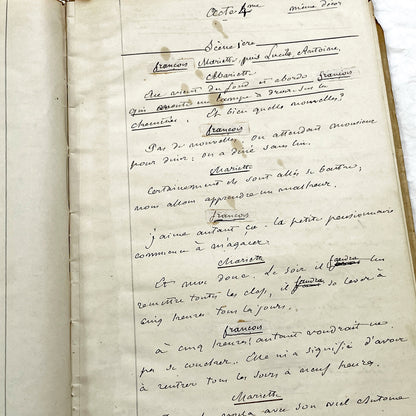 Acte 4ème même décor
Scène 1ère
François Mariette, puis Lucile, Antoine,
Mariette
Elle vient du fond et aborde François
qui une lampe à droite sur la
cheminée. Et bien quelles nouvelles?
François
Pas de nouvelles. On attendait monsieur
pour diner; on a diné sans lui.
Mariette
Certainement ils sont allés se battre;
nous allons apprendre un malheur.
François
J'aime autant ça. La petite pensionnaire
commence à m'agacer.
Mariette
Et moi donc. Le soir il faudra lui
remettre toutes les clefs, il faudra se lever à
cinq heures tous les jours.
François
à cinq heures! autant voudrait ne
pas se coucher. Elle m'a signifié d'avoir
à rentrer tous les soirs à neuf heures.
Mariette
avec son oncle Antoine